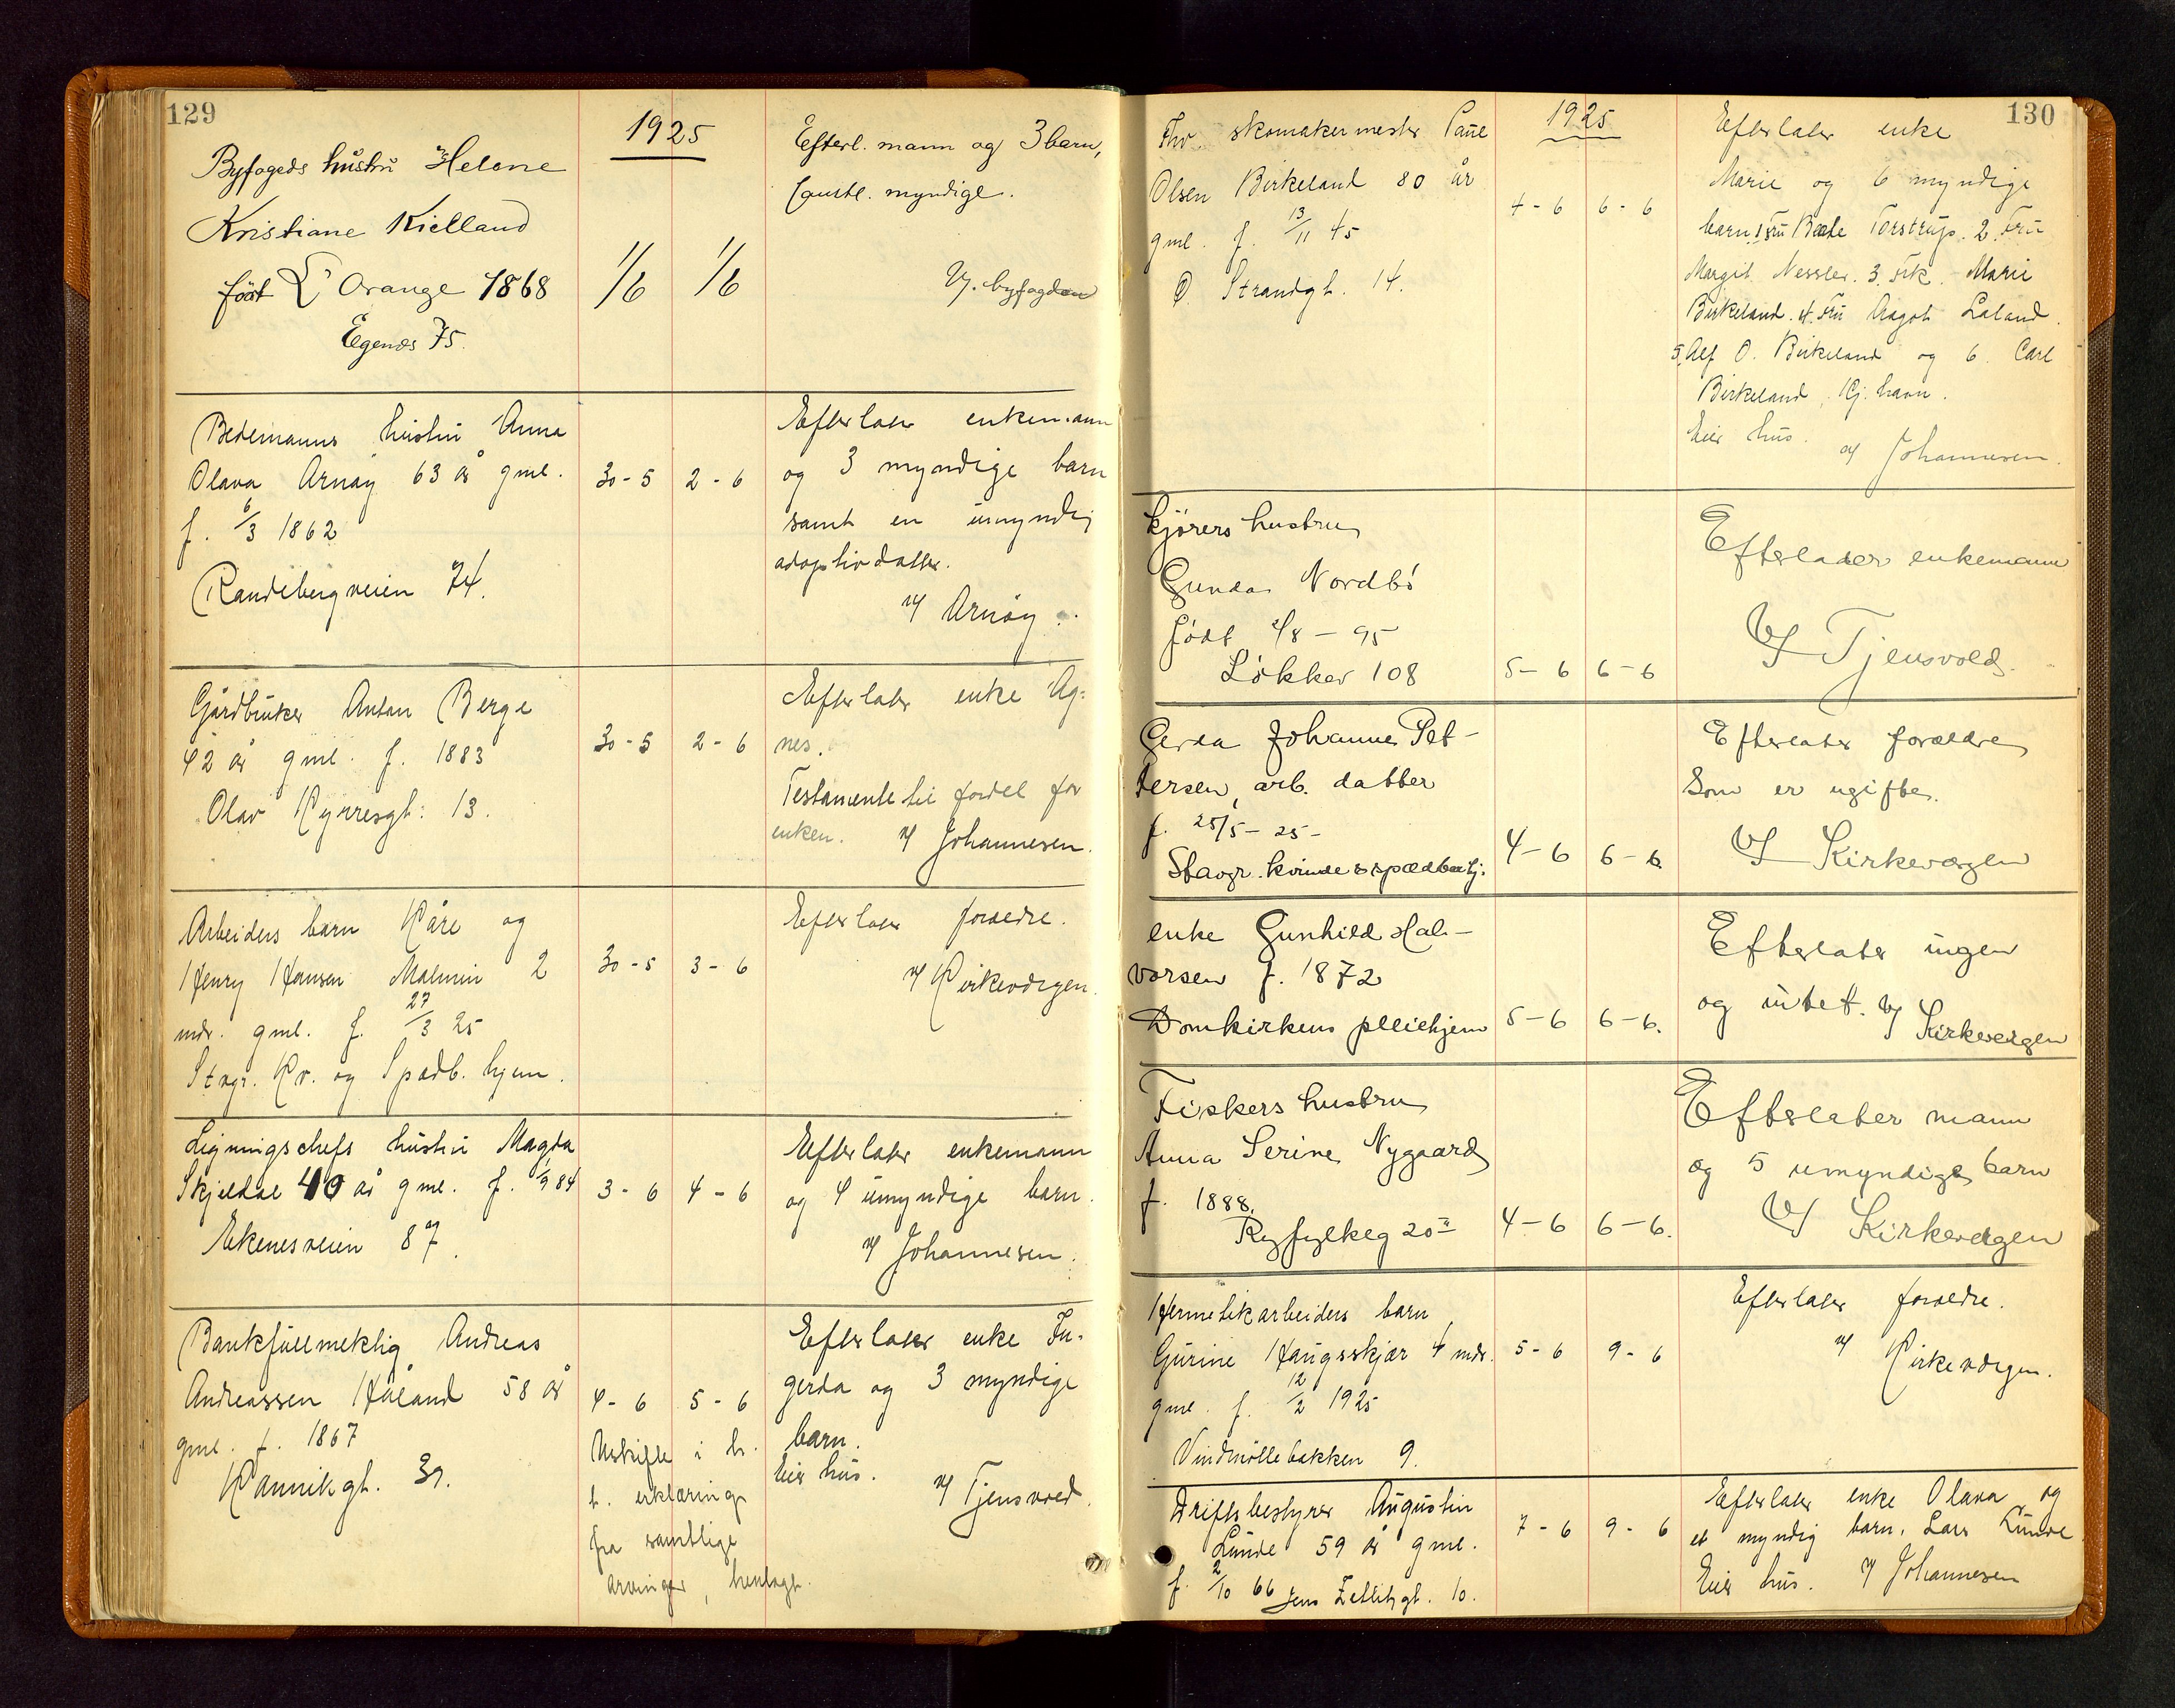 129
1925
Byfogeds hustru Helene
Kristiane Kielland
født L'Orange 1868
Egenes 75.
1/6 1/6
Efterl. mann og 3 barn,
samtl. myndige.
V. byfogden
Bedemanns hustru Anna
Olava Arnøy 63 år gml.
f. 6/3 1862
Randebergveien 74.
30-5 2-6
Efterlater enkemann
og 3 myndige barn
samt en umyndig
adoptivdatter.
v/ Arnøy
Gårdbruker Anton Berge
42 år gml. f. 1883
Olav Kyrresgt: 13.
30-5 2-6
Efterlater enke Ag-
nes.
Testamente til fordel for
enken. v/ Johannesen.
Arbeiders barn Kåre og
Henry Hansen Malmin 2
mdr. gml. f. 27/3 25
Stvgr. Kv. og Spædb. hjem.
30-5 3-6
Efterlater forældre.
v/ Kirkeværgen.
Ligningschefs hustru Magda
Skjeldal 40 år gml. f. 1/9 84
Ekenesveien 87.
3-6 4-6
Efterlater enkemann
og 4 umyndige barn.
v/ Johannesen.
Bankfullmektig Andreas
Andreassen Håland 58 år
gml. f. 1867
Kannikgt. 39.
4-6 5-6
Uskifte i h.
t. erklæring
fra samtlige
arvinger, henlagt.
Efterlater enke In-
gerda og 3 myndige
barn.
Eier hus.
v/ Tjensvold.
130
1925
Fhv. skomakermester Paul
Olsen Birkeland 80 år
gml. f. 13/11 45
Ø Strandgt. 14.
4-6 6-6
Efterlater enke
Marie og 6 myndige
barn: 1 Fru Beate Torstrup. 2. Fru
Margit Nessler. 3. Frk. Marie
Birkeland. 4. Fru Aagot Laland.
5. Alf O. Birkeland og 6. Carl
Birkeland, Kj.havn.
Eier hus. v/ Johannesen.
Kjørers hustru
Gunda Nordbø
født 2/8-95
Løkkev 108
5-6 6-6
Efterlader enkemann
V/ Tjensvold.
Gerda Johanne Pet-
tersen, arb. datter
f. 25/5-25-
Stavgr. kvinde & spædbarhj.
4-6 6-6
Efterlater forældre
som er ugifte.
V/ Kirkevægen
Enke Gunhild Hal-
vorsen f. 1872
Domkirkens pleiehjem
5-6 6-6.
Efterlater ingen
og intet. V/ Kirkevergen
Fiskers hustru
Anna Serine Nygaard
f. 1888.
Ryfylkeg 20 II
4-6 6-6.
Efterlater mann
og 5 umyndige barn
V/ Kirkevergen
Hermetikarbeiders barn
Gurine Haugsskjær 4 mdr.
gml. f. 12/2 1925
Vindmøllebakken 9.
5-6 9-6
Efterlater forældre.
v/ Kirkeværgen.
Driftsbestyrer Augustin
Lunde 59 år gml.
f. 2/10 66 Jens Zetlitzgt. 10.
7-6 9-6
Efterlater enke Olava og
et myndig barn. Lars Lunde
Eier hus. v/ Johannesen